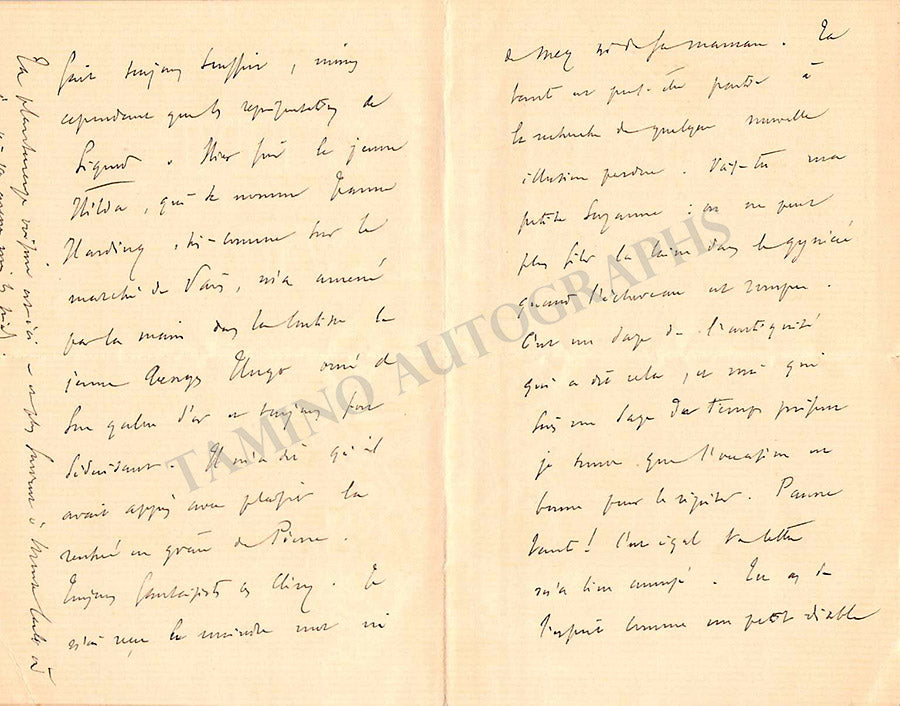 fait toujours souffrir, moins
cependant que les représentations de
Sigurd. Hier soir la jeune
Hilda, qui se nomme Jeanne
Harding, ici comme sur le
marché de Paris, m'a amené
par la main dans la coulisse le
jeune Georges Hugo orné de
son galon d'or et toujours fort
séduisant. Il m'a dit qu'il
avait appris avec plaisir la
rentrée en grâce de Pierre.
Toujours fantaisiste ce Cliny. Je
n'ai reçu le moindre mot ni
de Mey ni de sa maman. Ta
tante est peut-être partie à
la recherche de quelque nouvelle
illusion perdue. Vois-tu ma
petite Suzanne : on ne peut
plus filer la laine dans le gynécée
quand l'écheveau est rompu.
C'est un sage de l'antiquité
qui a dit cela, et moi qui
suis un sage du temps présent
je trouve que l'occasion est
bonne pour le répéter. Pauvre
tante ! C'est égal ta lettre
m'a bien amusé. Tu as de
l'esprit comme un petit diable
La plantureuse voisine est ici
TAMINO AUTOGRAPHS